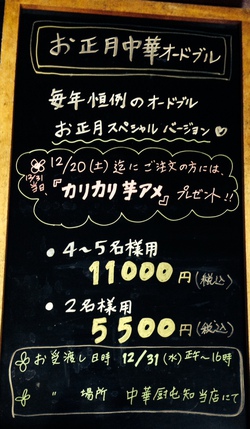 お正月中華オードブル
毎年恒例のオードブル
お正月スペシャルバージョン
12/20(土)迄にご注文の方には、
12/31当日、
『カリカリ芋アメ』プレゼント!!
・4〜5名様用
11000円(税込)
・2名様用
5500円(税込)
お受渡し日時 12/31(水)正午〜16時
〃 場所 中華厨房知当店にて